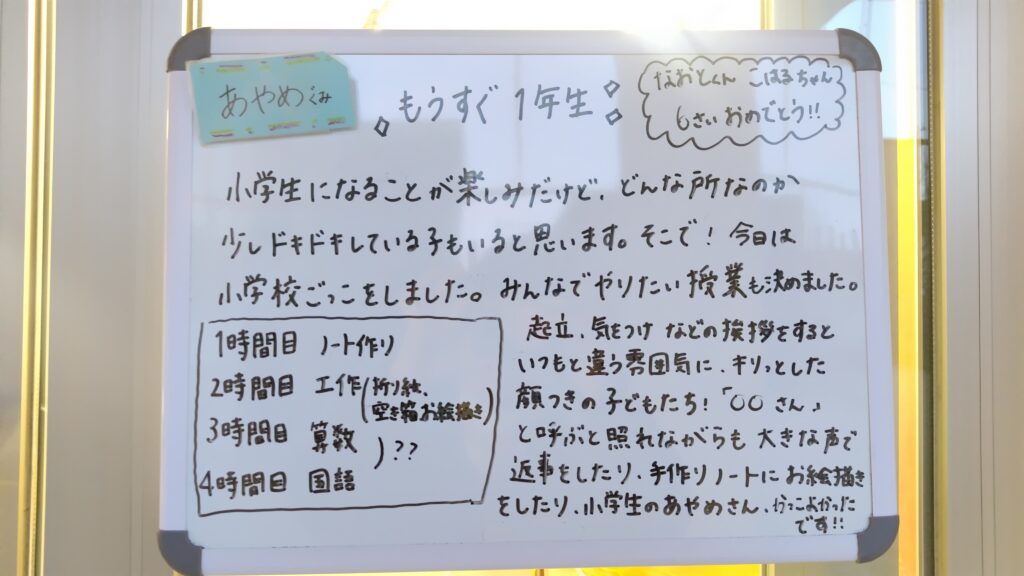 あやめぐみ
もうすぐ 1年生
なおとくん こはるちゃん
6さい おめでとう!!
小学生になることが楽しみだけど、どんな所なのか
少しドキドキしている子もいると思います。そこで! 今日は
小学校ごっこをしました。みんなでやりたい授業も決めました。
1時間目 ノート作り
2時間目 工作(折り紙、
空き箱お絵描き)
3時間目 算数
)??
4時間目 国語
起立、気をつけ などの挨拶をすると
いつもと違う雰囲気に、キリっとした
顔つきの子どもたち!「○○さん」
と呼ぶと照れながらも大きな声で
返事をしたり、手作りノートにお絵描き
をしたり、小学生のあやめさん、かっこよかった
です!!